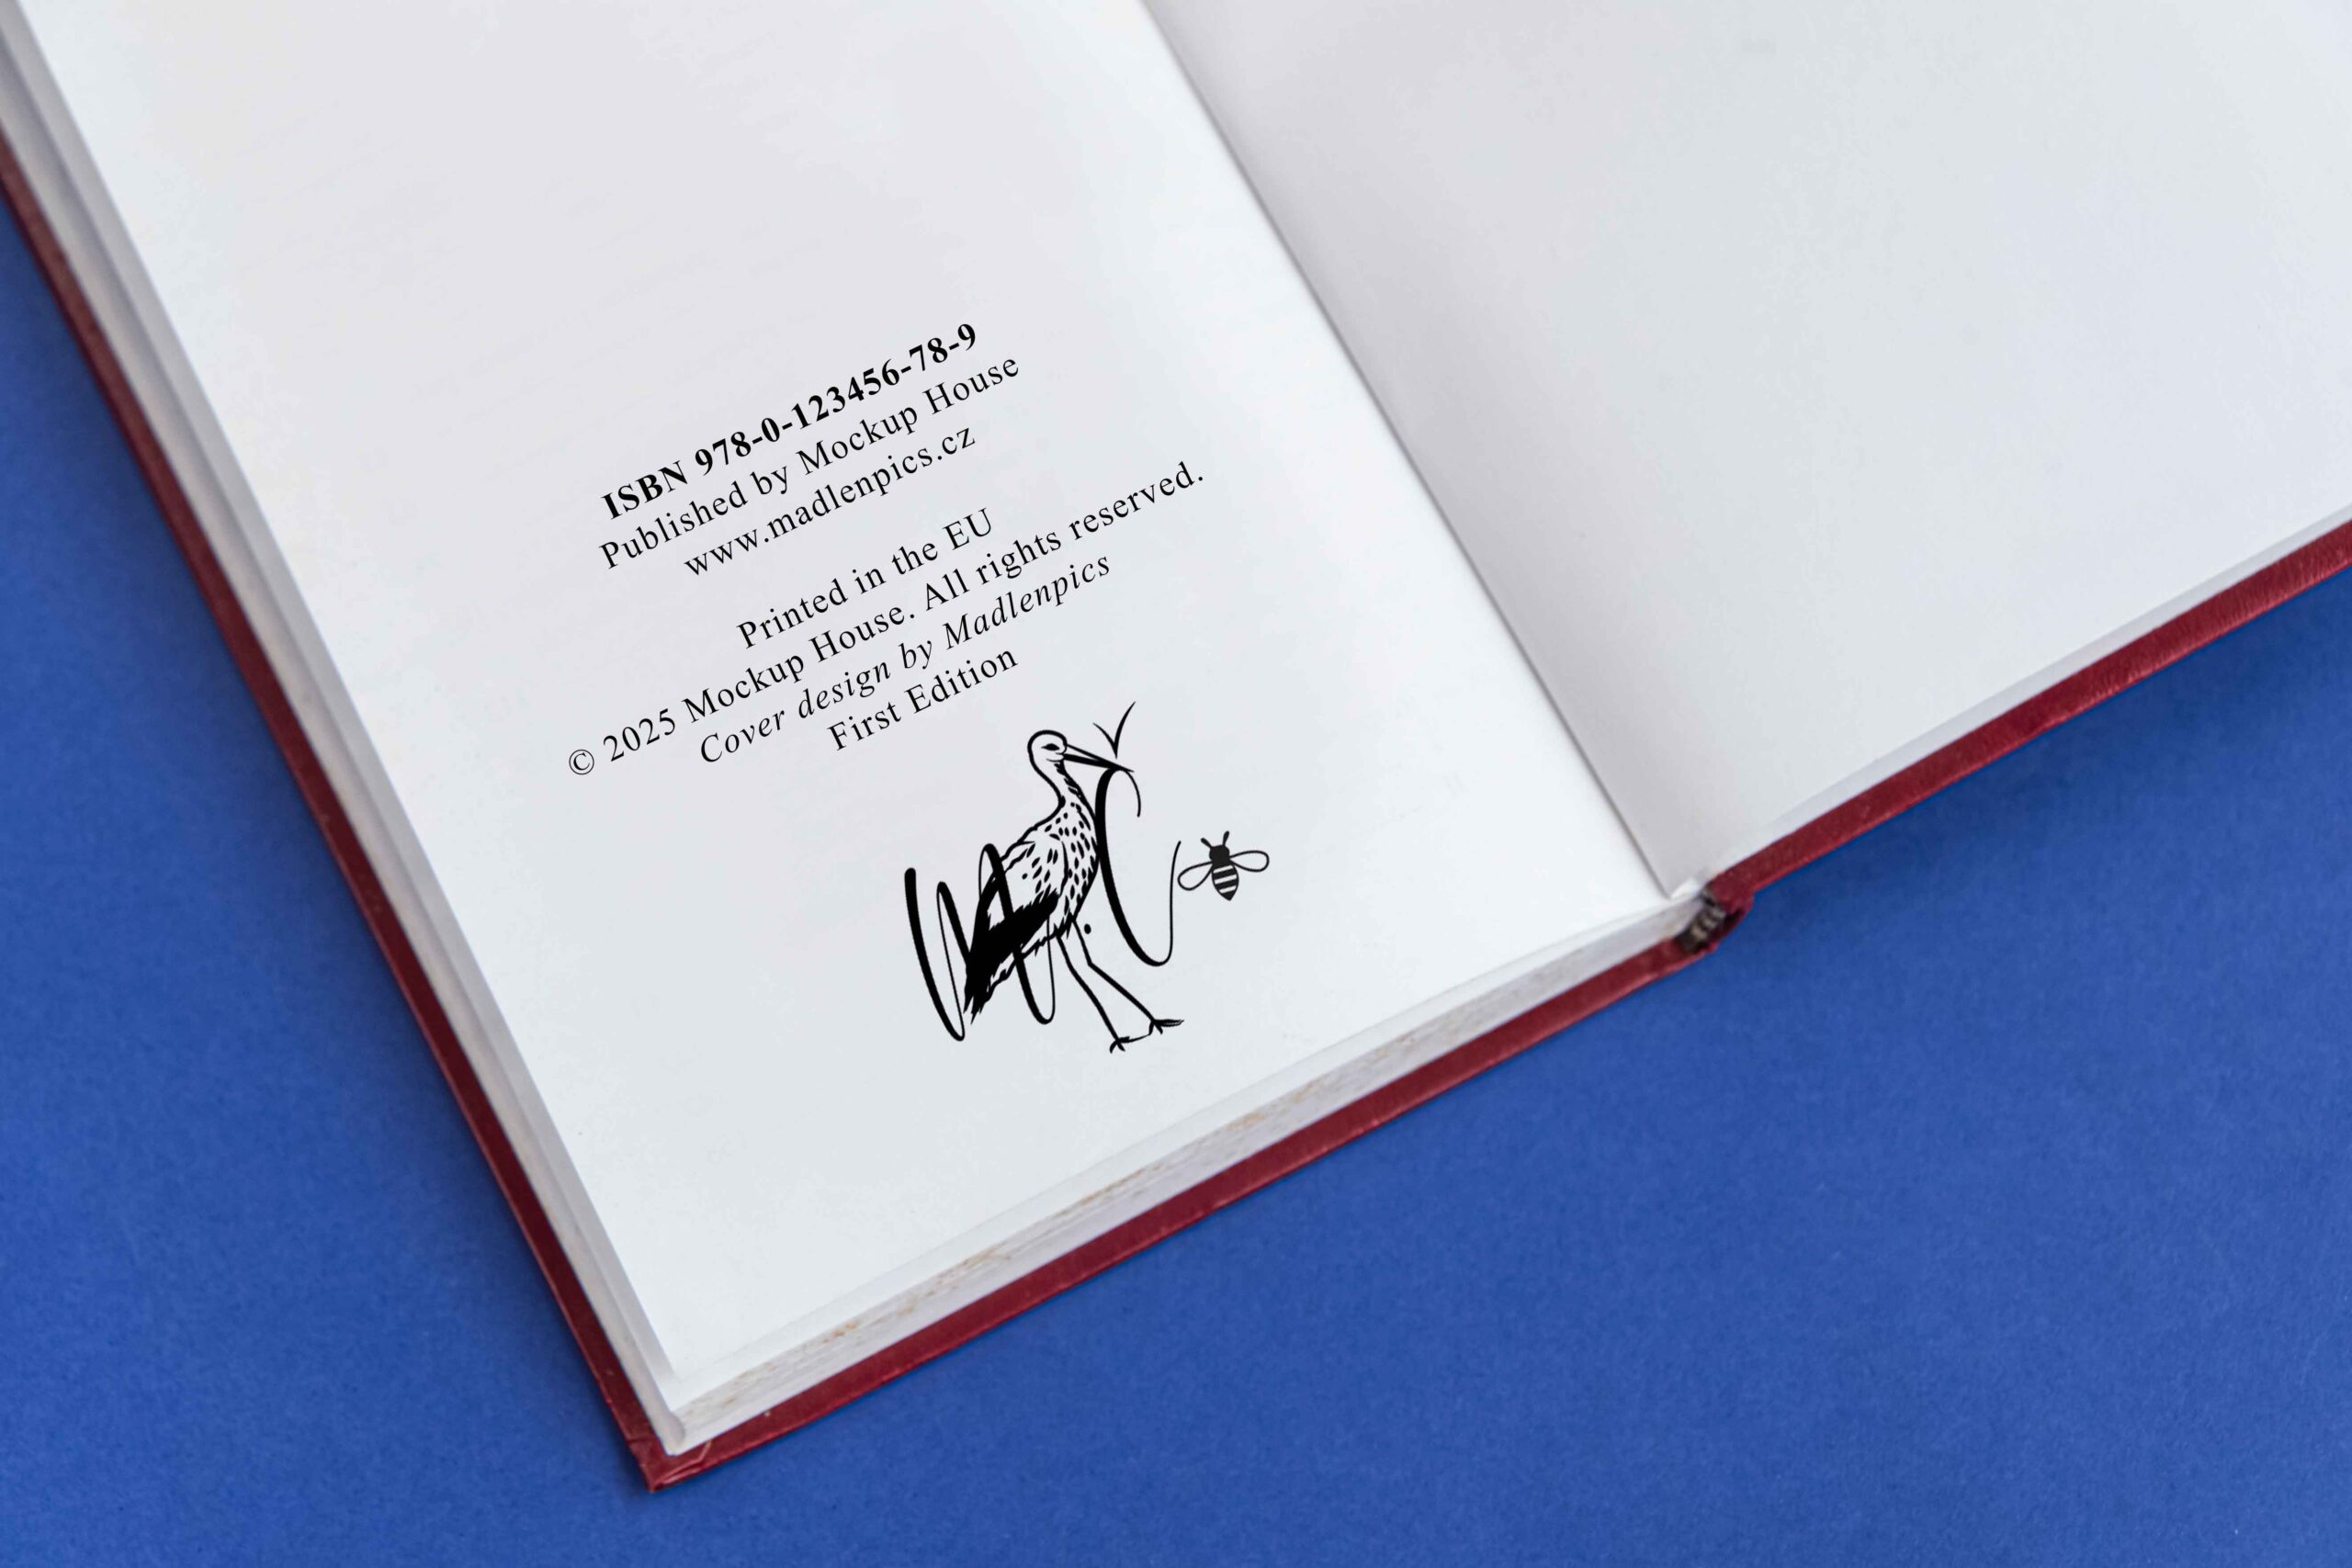 ISBN 978-0-123456-78-9
Published by Mockup House
www.madlenpics.cz
Printed in the EU
© 2025 Mockup House. All rights reserved.
Cover design by Madlenpics
First Edition